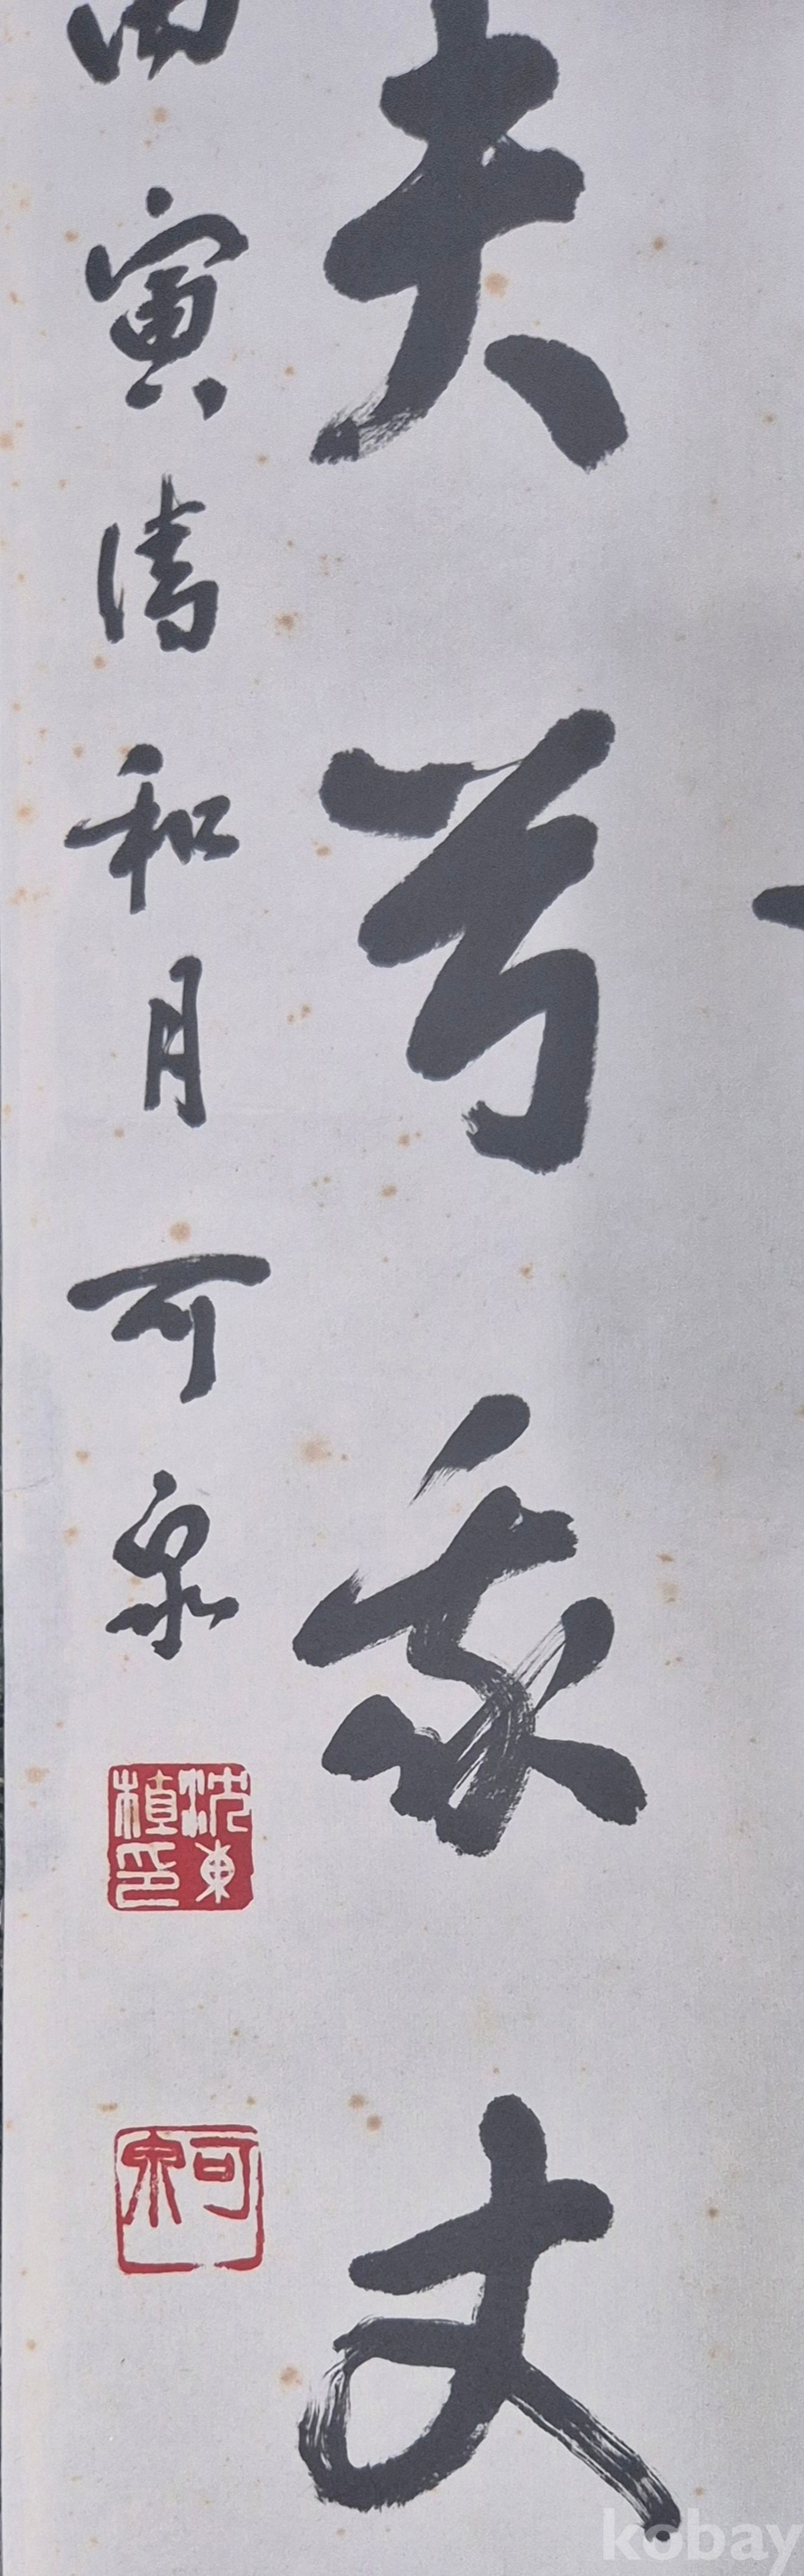 夫兮我丈
丙寅清和月可泉
沈東
印
可泉
kobay